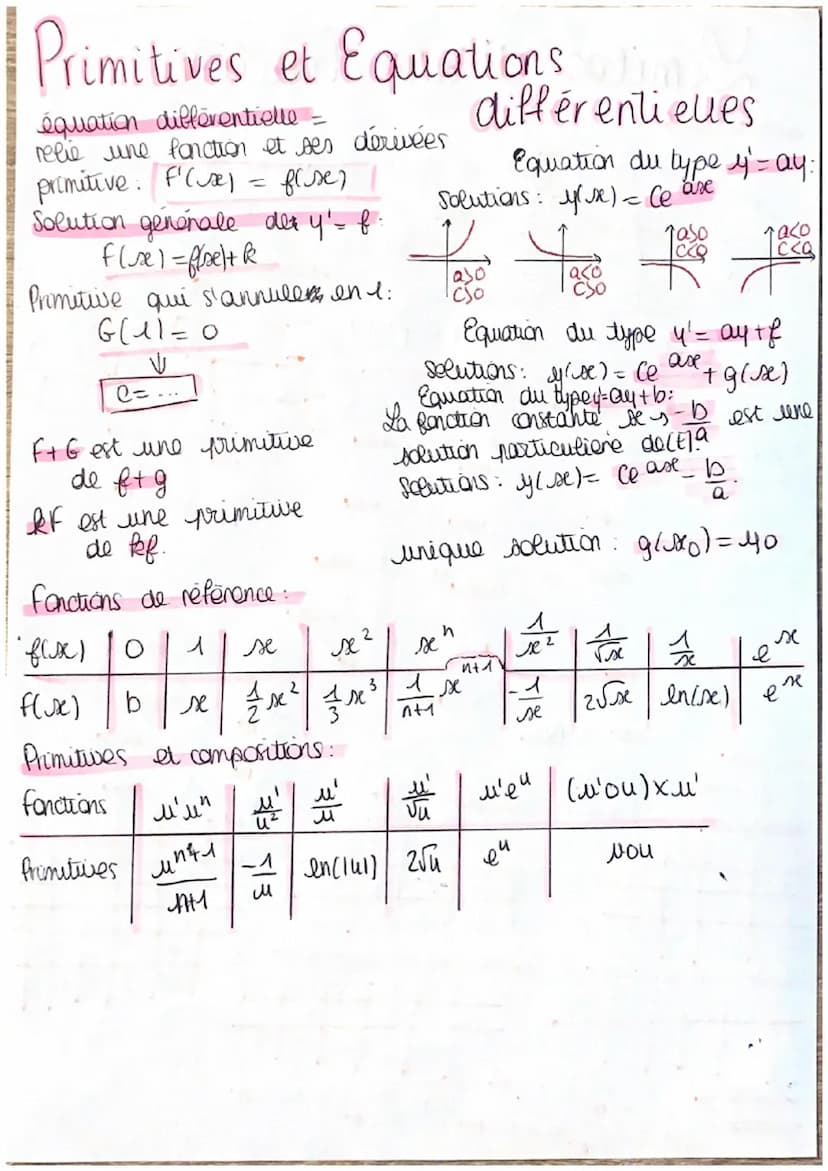 Primitives et Equations
différentielles
équation différentielle =
relie une fonction et ses dérivées
primitive : F'(x) = f(x)
Solution générale de y' = f :
F(x) = f(x) + k
Primitive qui s'annule en 1 :
G(1) = 0
↓
C = ...
F+G est une primitive
de f+g
kF est une primitive
de kf.
Equation du type y' = ay :
Solutions : y(x) = Ce^{ax}
a>0 C>0 | a<0 C>0 | a>0 C<0 | a<0 C<0
Equation du type y' = ay + f
solutions : y(x) = Ce^{ax} + g(x)
Equation du type y = ay + b :
La fonction constante x → -b/a est une
solution particulière de (E).
Solutions : y(x) = Ce^{ax} - b/a.
unique solution : g(x₀) = y₀
Fonctions de référence :
f(x) | 0 | 1 | x | x² | xⁿ | 1/x² | 1/√x | 1/x | e^x
f(x) | b | x | 1/2 x² | 1/3 x³ | 1/(n+1) x^{n+1} | -1/x | 2√x | ln(x) | e^x
Primitives et compositions :
Fonctions | u'uⁿ | u'/u² | u'/u | u'/√u | u'e^u | (v'ou) × u'
Primitives | u^{n+1}/(n+1) | -1/u | ln(|u|) | 2√u | e^u | vou